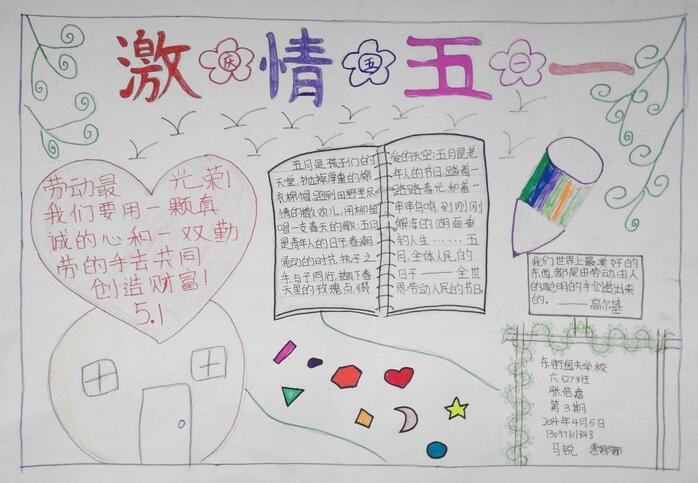 激 庆 情 五 五 一
劳动最 光荣!
我们要用一颗真
诚的心和一双勤
劳的手去共同
创造财富!
5.1
五月是孩子们的
天堂,抛掉厚重的棉
衣棉帽,跑到田野里尽
情的撒欢儿,用柳笛
唱一支春天的歌;五月
是青年人的日子,春潮
涌动的时节,执子之
手与子同行,撷下春
天里的玫瑰点缀
爱的天空;五月是老
年人的节日,踏着一
路路春光,和着一
串串鸟鸣,到刚刚
解冻的湖面垂
钓人生……五
月,全体人民的
日子——全世
界劳动人民的节日
我们世界上最美好的
东西,都是由劳动、由人
的聪明的手创造出来
的。——高尔基
东街逸夫学校
第3期
2014年4月5日
马锐